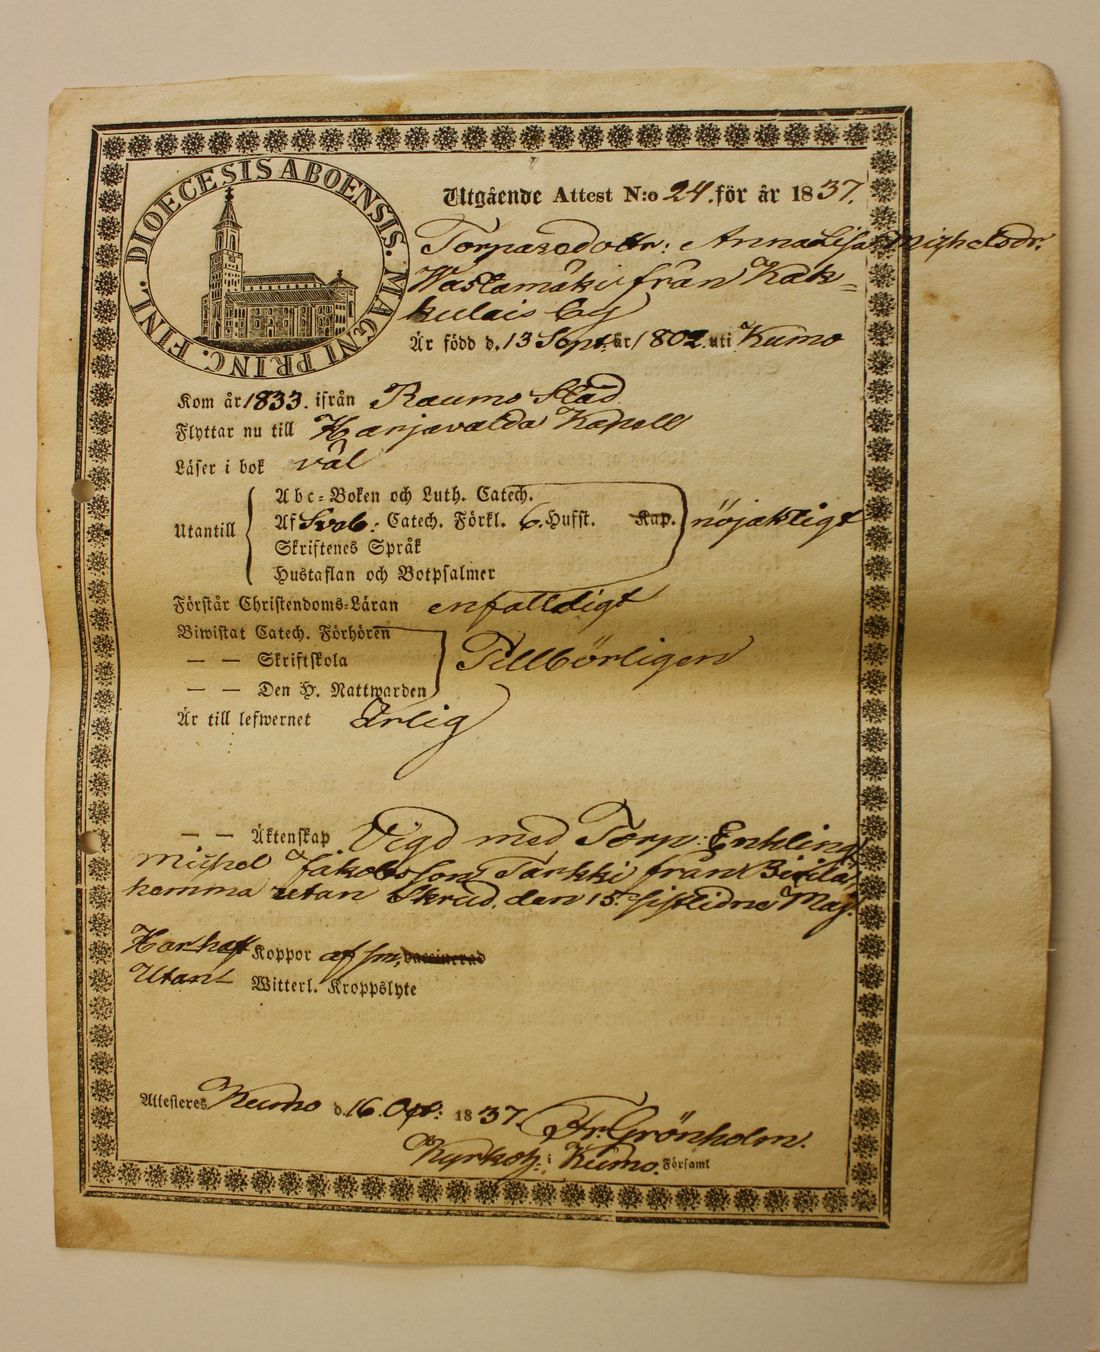 DIOECESIS ABOENSIS. MAGNI PRINC. FINL.
Utgående Attest N:o 24. för år 1837.
Torparedottr: Anna Lisa Michelsdr.
Wastamäki från Kak=
kulais by
Är född d. 13 Sept. år 1802. uti Kumo
Kom år 1833. ifrån Raumo Stad
Flyttar nu till Harjavalda Kapell
Läser i bok väl
Abc-Boken och Luth. Catech.
Utantill Af Sveb: Catech. Förkl. 6. Hufst. Kap. nöjaktigt
Skriftenes Språk
Hustaflan och Botpsalmer
Förstår Christendoms-Läran enfaldigt
Biwistat Catech. Förhören
— — Skriftskola Tillbörligen
— — Den H. Nattwarden
Är till lefwernet Ärlig
— — Äktenskap Vigd med Torp. Enkling
Michel Jakobsson Tarkki från
hemma utan Skrud. den 15 sistlidne Maj.
Har haft Koppor vaccinerad
Utant Witterl. Kroppslyte
Attesteres Kumo d. 16. Oct: 1837. Fr. Grönholm.
Kyrkoh: i Kumo. Församl